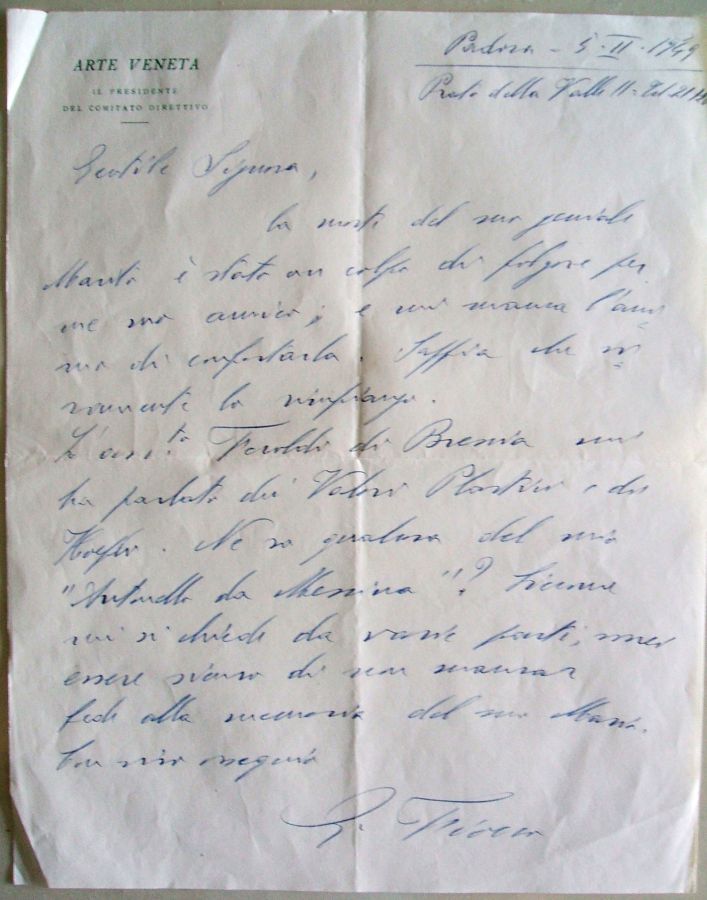 ARTE VENETA
IL PRESIDENTE
DEL COMITATO DIRETTIVO
Padova - 5 - II - 1949
Prato della Valle 11 - Tel 21
Gentile Signora,
la morte del suo geniale
Marito è stato un colpo di folgore per
me suo amico; e mi manca l'ani
mo di confortarla. Sappia che vi
vamente lo rimpiango.
L'avv.to Feroldi di Brescia mi
ha parlato di Valori Plastici e di
Hoepli. Ne sa qualcosa del mio
"Antonello da Messina"? Siccome
mi si chiede da varie parti, vorrei
essere sicuro di non mancar
fede alla memoria del suo Marito.
Con vivo ossequio
G. Fiocco